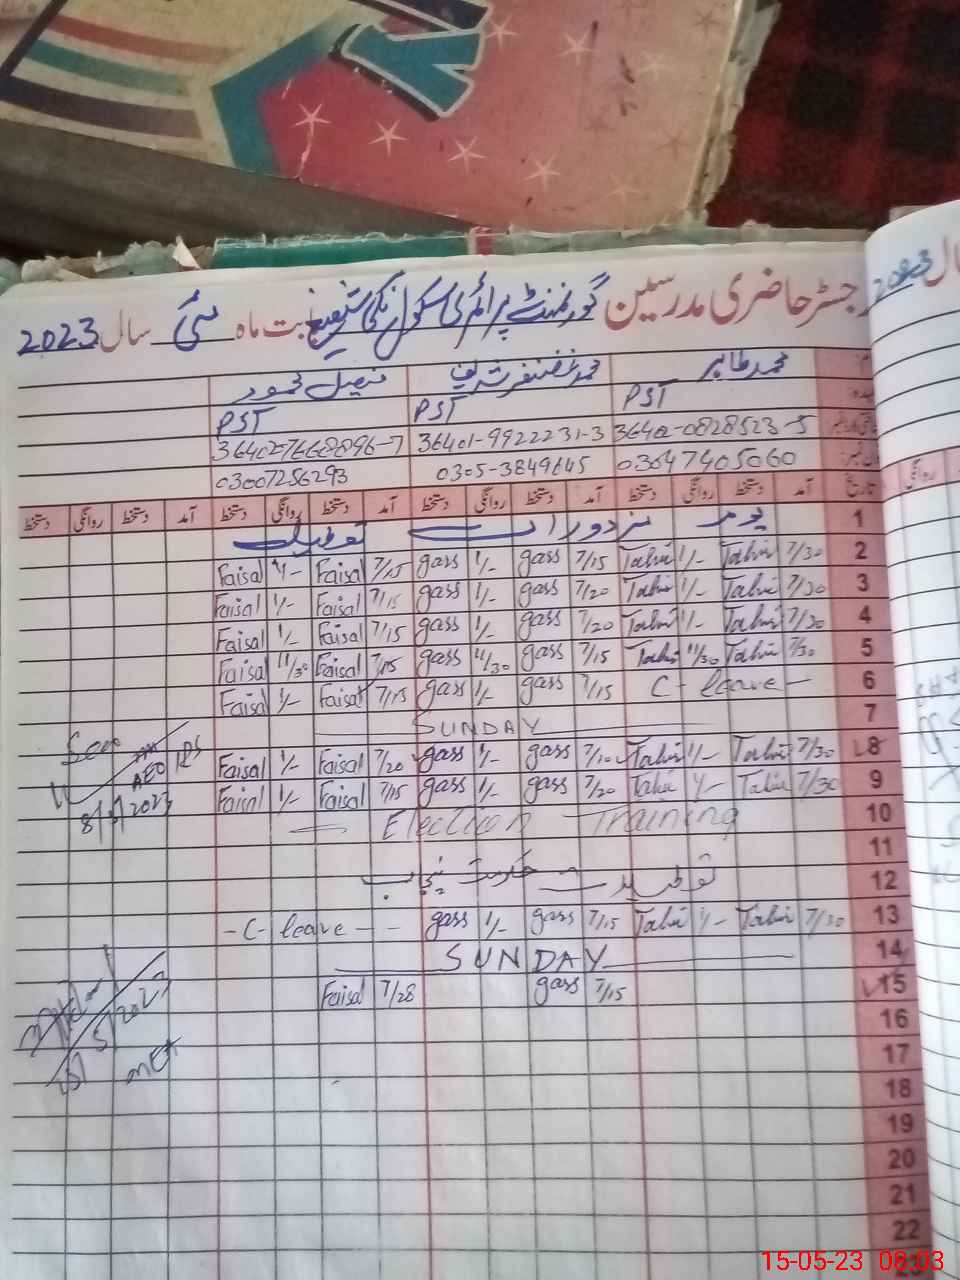 رجسٹر حاضری مدرسین گورنمنٹ پرائمری سکول بابت ماہ مئی سال 2023
محمد طاہر محمد غضنفر شریف فیصل محمود
PST PST PST
36402-0828523-5 36401-9922231-3 36402-7668896-7
03047405060 0305-3849645 03007256293
تاریخ آمد دستخط روانگی دستخط آمد دستخط روانگی دستخط آمد دستخط روانگی دستخط آمد دستخط روانگی دستخط
1 یوم مزدوراں تعطیل
Faisal 1/- Faisal 7/15 gass 1/- gass 7/15 Tahir 1/- Tahir 7/30 2
Faisal 1/- Faisal 7/15 gass 1/- gass 7/20 Tahir 1/- Tahir 7/30 3
Faisal 1/- Faisal 7/15 gass 1/- gass 7/20 Tahir 1/- Tahir 7/30 4
Faisal 11/30 Faisal 7/15 gass 11/30 gass 7/15 Tahir 11/30 Tahir 7/30 5
Faisal 1/- Faisal 7/15 gass 1/- gass 7/15 C- leave - 6
SUNDAY 7
Seen
Faisal 1/- Faisal 7/20 gass 1/- gass 7/10 Tahir 1/- Tahir 7/30 8
AEO
8/5/2023
Faisal 1/- Faisal 7/15 gass 1/- gass 7/20 Tahir 1/- Tahir 7/30 9
Election Training 10
11
تعطیلات حکومت پنجاب 12
- C- leave - - gass 1/- gass 7/15 Tahir 1/- Tahir 7/30 13
SUNDAY 14
Faisal 7/28 gass 7/15 15
16
17
18
19
20
21
22
23
2023
15-05-23 08:03